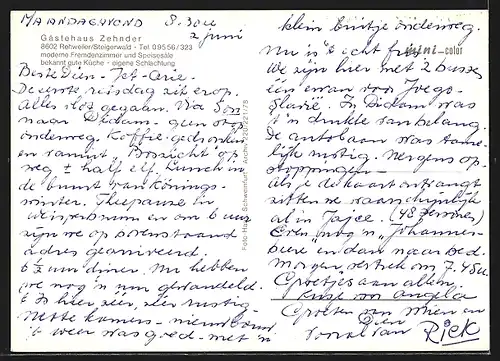 MAANDAGAVOND 8.30u
2 juni
Gästehaus Zehnder
8602 Rehweiler/Steigerwald - Tel. 09556/323
moderne Fremdenzimmer und Speisesäle
bekannt gute Küche - eigene Schlachtung
Beste Dien - Jet - Corie.
De eerste reisdag zit erop.
Alles is gegaan. Via
naar Didam - geen stop
onderweg. Koffie gedronken
en Bezicht op
weg ± half elf. Lunch in
de buurt van Konings-
winter. Theepauze in
en om 6 uur
zijn we op bovenstaand
adres gearriveerd.
6½ uur diner. Nu hebben
we nog 'n um gewandeld.
't Is hier zeer, zeer rustig -
nette kamers - nieuwbouw
't weer was goed - met 'n
Foto: Hans
klein buitje onderweg.
Nu is 't echt
mini-color
We zijn hier met 2 bussen
één ervan voor Joego-
slavië. In Didam was
't 'n drukte van belang.
De autobaan was tame-
lijk rustig. Nergens op-
stoppingen
als je de kaart ontvangt
zitten we waarschijnlijk
al in Jajce. (48 personen)
Even nog 'n "Johannes-
bier" en dan naar bed.
Morgen vertrek om 7.45u
Groetjes aan allen
Angela
Groeten van Wien en
Dien
Vooral van Riek